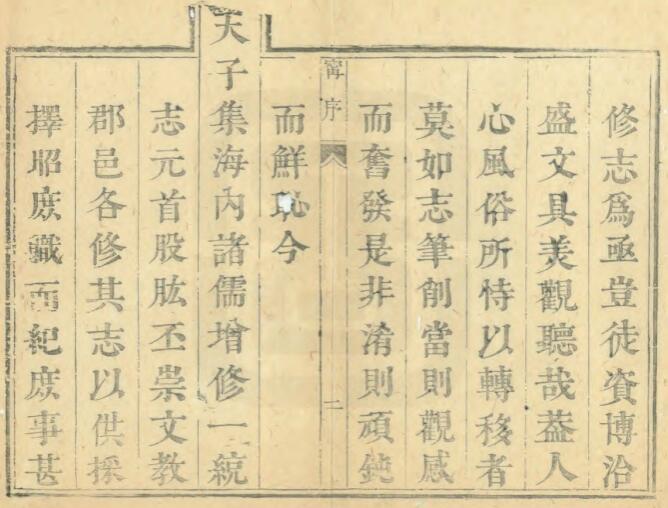 修志爲亟豈徒資博洽
盛文具美觀聽哉葢人
心風俗所恃以轉移者
莫如志筆削當則觀感
而奮發是非淆則頑鈍
而鮮恥今
甯序
二
天子集海內諸儒增修一統
志元首股肱丕崇文教
郡邑各修其志以供採
擇昭庶職而紀庶事甚